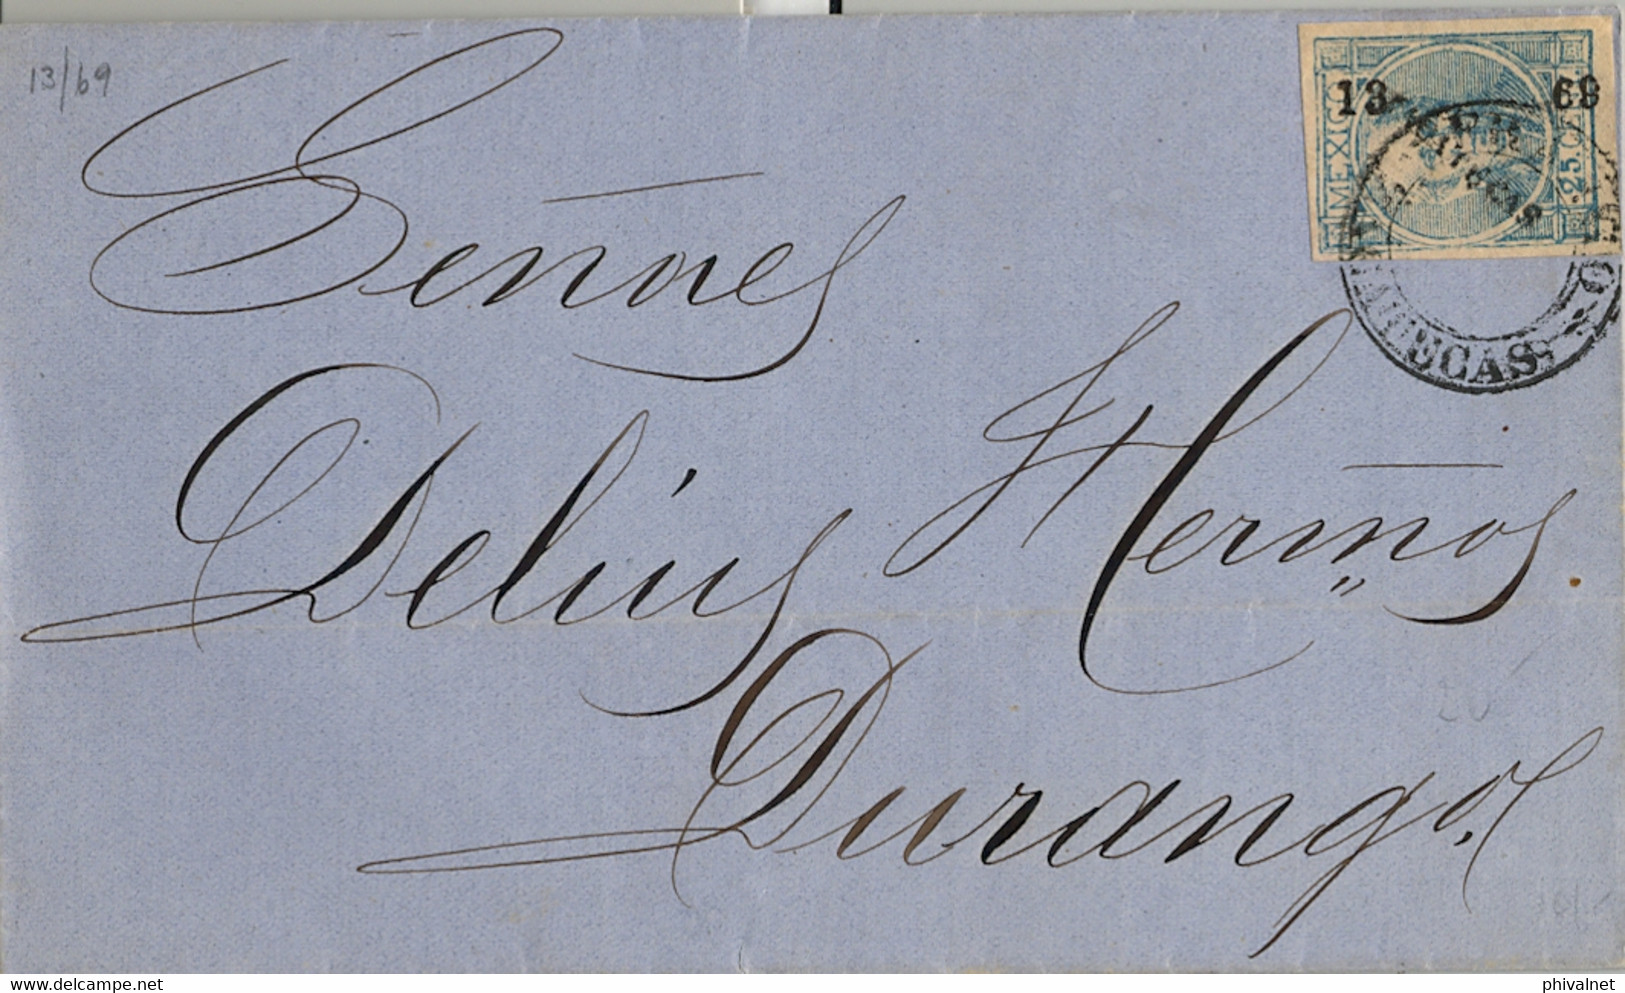 13/69
MEXICO
13 69
25. CENT
ZACATECAS
Señores
Delius Hermños
Durango.
delcampe.net
phivalnet